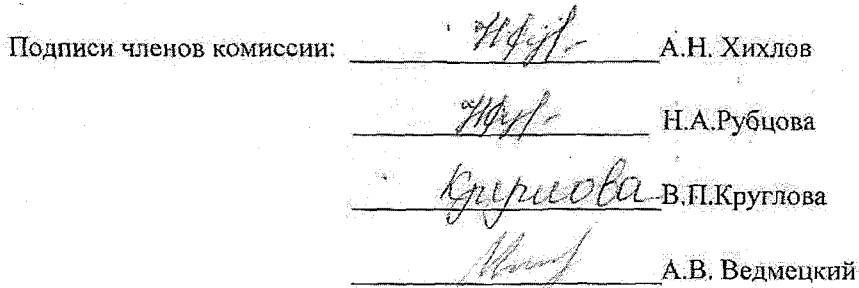 Подписи членов комиссии: А.Н. Хихлов
Н.А.Рубцова
Круглова В.П.Круглова
А.В. Ведмецкий